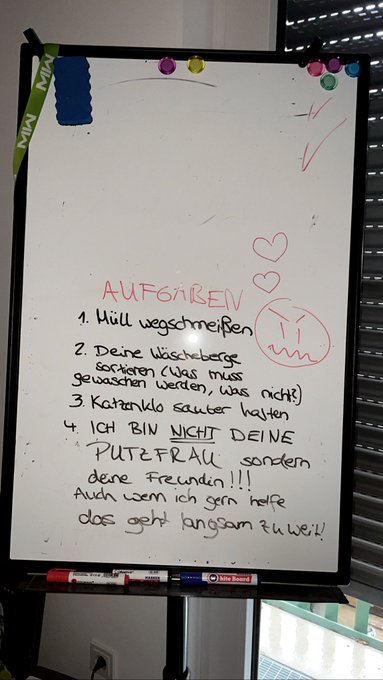 MIW
MIW
MIW
AUFGABEN
1. Müll wegschmeißen
2. Deine Wäscheberge
sortieren (Was muss
gewaschen werden, was nicht?)
3. Katzenklo sauber halten
4. ICH BIN NICHT DEINE
PUTZFRAU sondern
deine Freundin!!!
Auch wenn ich gern helfe
das geht langsam zu weit!
MARKER
hite Board